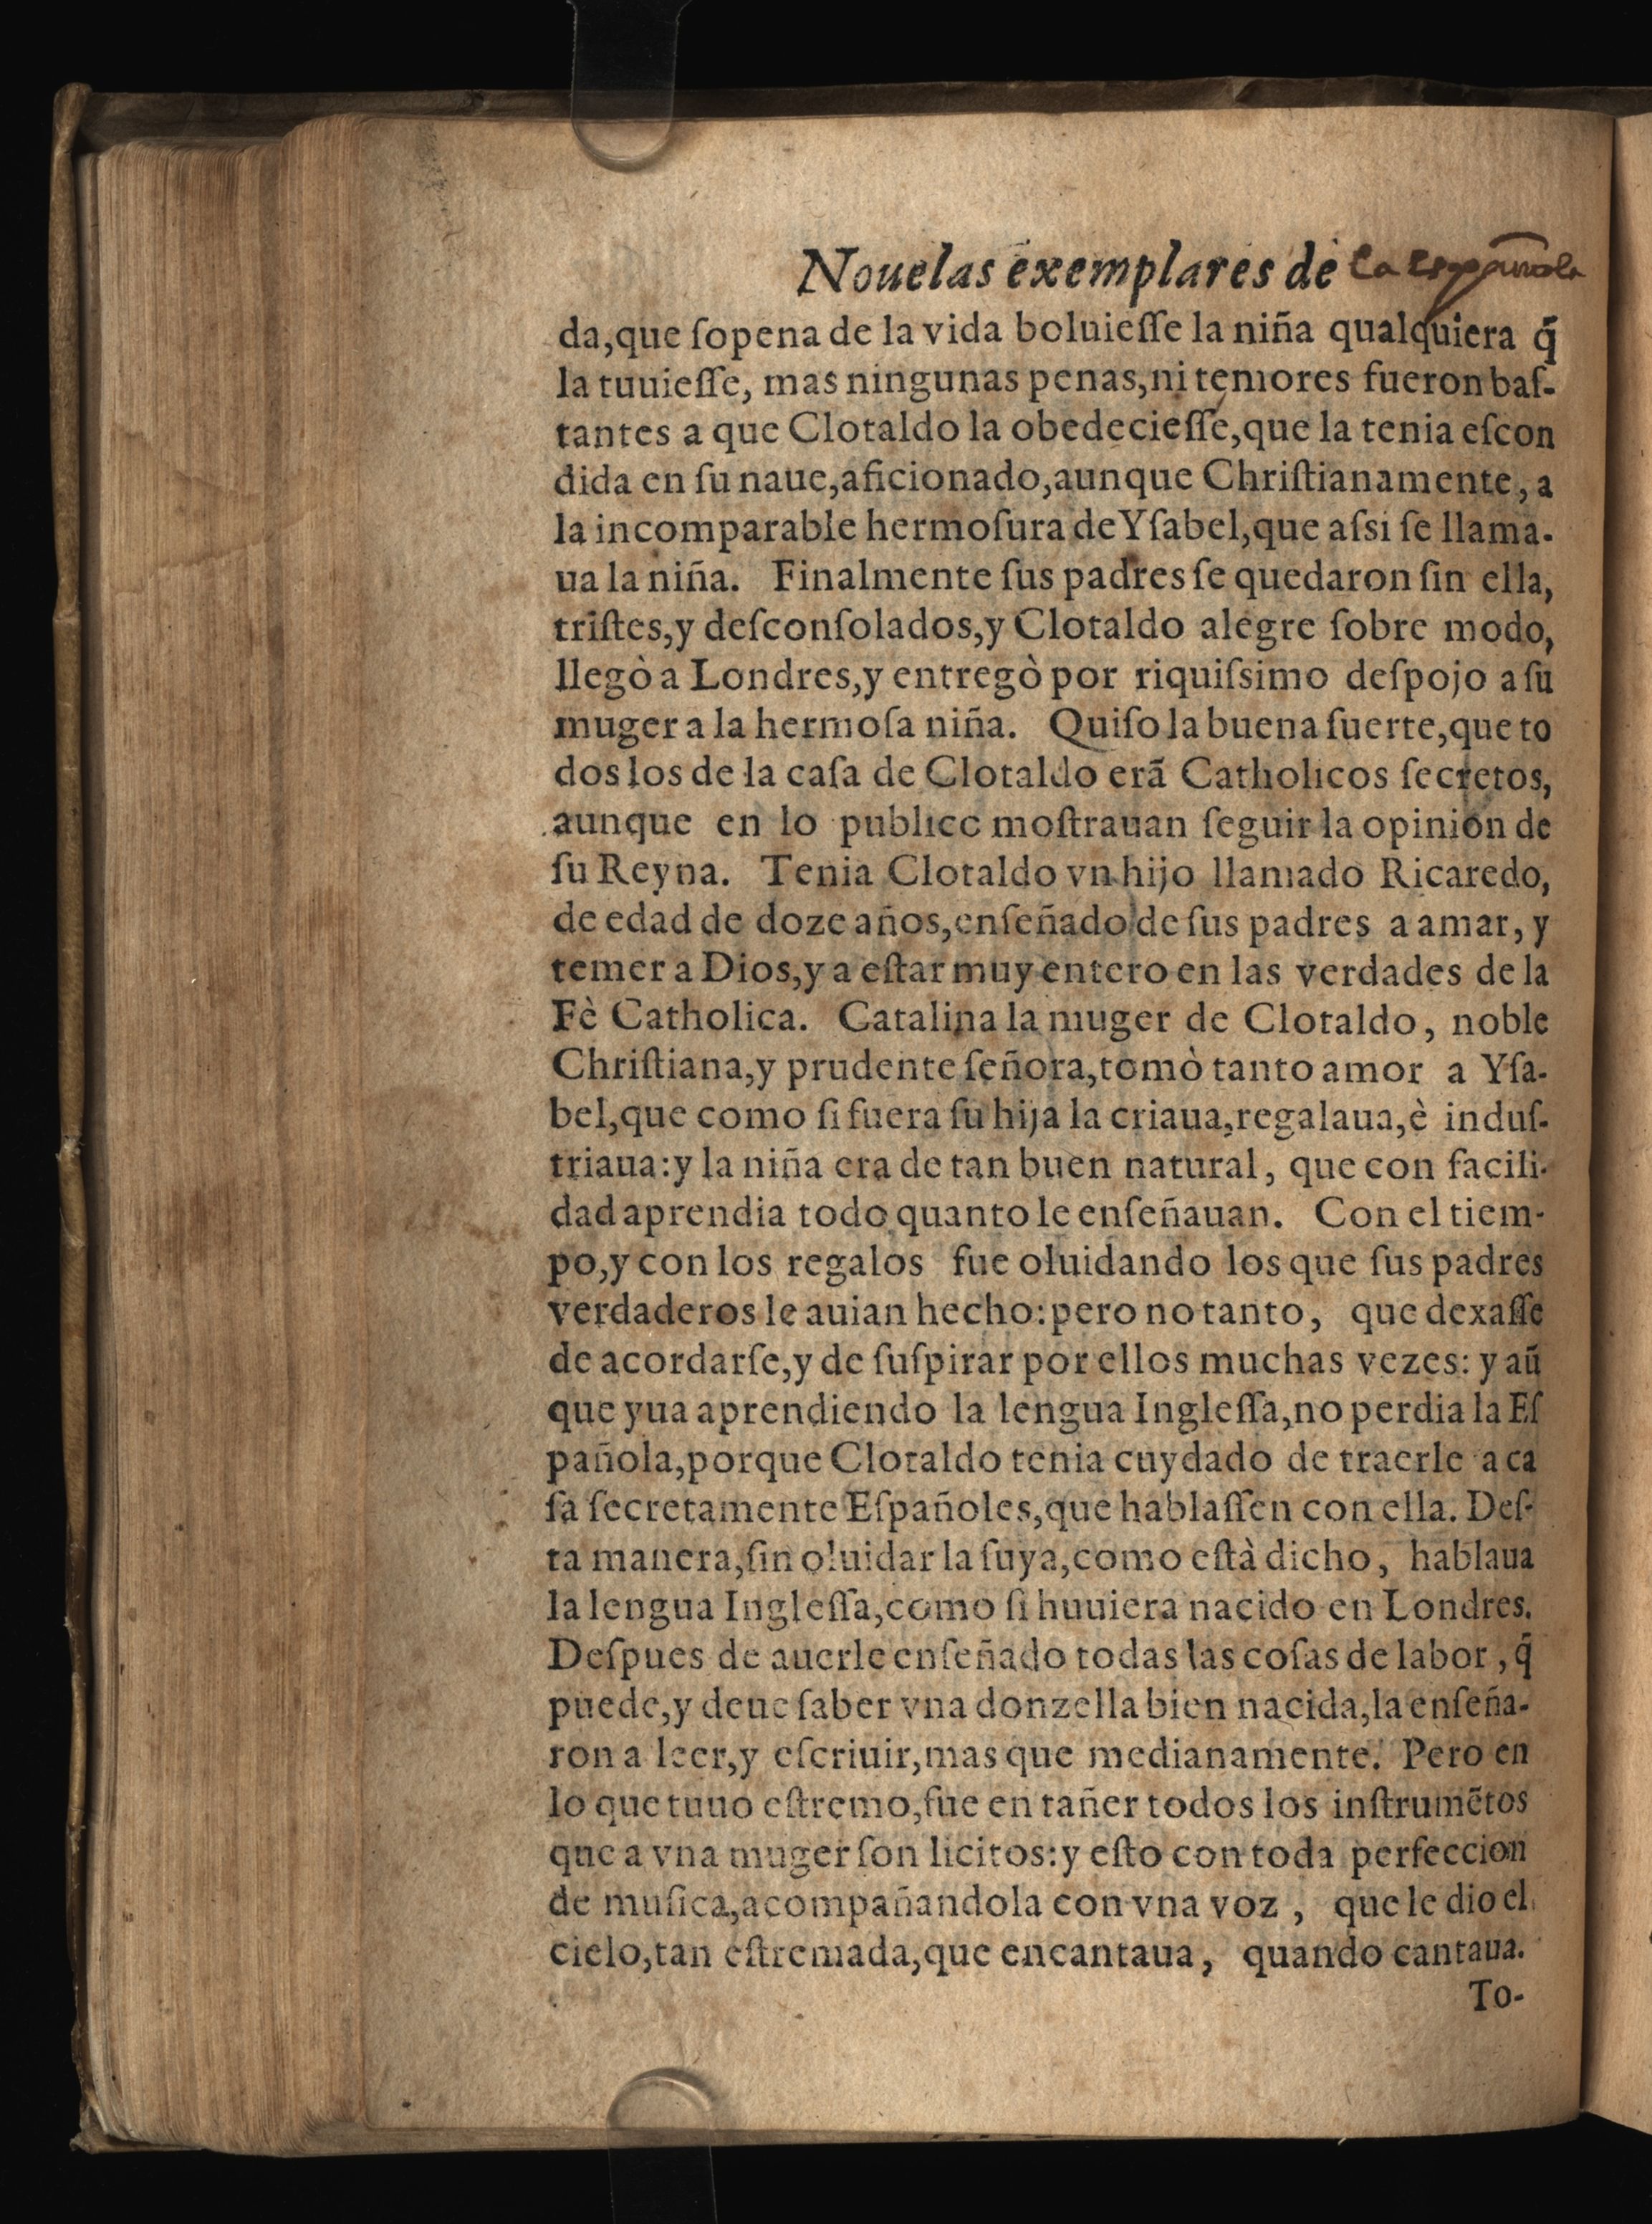 Nouelas exemplares de la española
da,que ſopena de la vida boluieſſe la niña qualquiera q̃
la tuuieſſe, mas ningunas penas,ni temores fueron baſ-
tantes a que Clotaldo la obedecieſſe,que la tenia eſcon
dida en ſu naue,aficionado,aunque Chriſtianamente, a
la incomparable hermoſura de Yſabel,que aſsi ſe llama-
ua la niña. Finalmente ſus padres ſe quedaron ſin ella,
triſtes,y deſconſolados,y Clotaldo alegre ſobre modo,
llegò a Londres,y entregò por riquiſsimo deſpojo a ſu
muger a la hermoſa niña. Quiſo la buena ſuerte,que to
dos los de la caſa de Clotaldo erã Catholicos ſecretos,
aunque en lo publico moſtrauan ſeguir la opinion de
ſu Reyna. Tenia Clotaldo vn hijo llamado Ricaredo,
de edad de doze años,enſeñado de ſus padres a amar, y
temer a Dios,y a eſtar muy entero en las verdades de la
Fè Catholica. Catalina la muger de Clotaldo, noble
Chriſtiana,y prudente ſeñora,tomò tanto amor a Yſa-
bel,que como ſi fuera ſu hija la criaua,regalaua,è induſ-
triaua:y la niña era de tan buen natural, que con facili-
dad aprendia todo quanto le enſeñauan. Con el tiem-
po,y con los regalos fue oluidando los que ſus padres
verdaderos le auian hecho:pero no tanto, que dexaſſe
de acordarſe,y de ſuſpirar por ellos muchas vezes: y aũ
que yua aprendiendo la lengua Ingleſſa,no perdia la Eſ
pañola,porque Clotaldo tenia cuydado de traerle a ca
ſa ſecretamente Eſpañoles,que hablaſſen con ella. Deſ-
ta manera,ſin oluidar la ſuya,como eſtà dicho, hablaua
la lengua Ingleſſa,como ſi huuiera nacido en Londres.
Deſpues de auerle enſeñado todas las coſas de labor, q̃
puede,y deue ſaber vna donzella bien nacida,la enſeña-
ron a leer,y eſcriuir,mas que medianamente. Pero en
lo que tuuo eſtremo,fue en tañer todos los inſtrumẽtos
que a vna muger ſon licitos:y eſto con toda perfeccion
de muſica,acompañandola con vna voz, que le dio el
cielo,tan eſtremada,que encantaua, quando cantaua.
To-